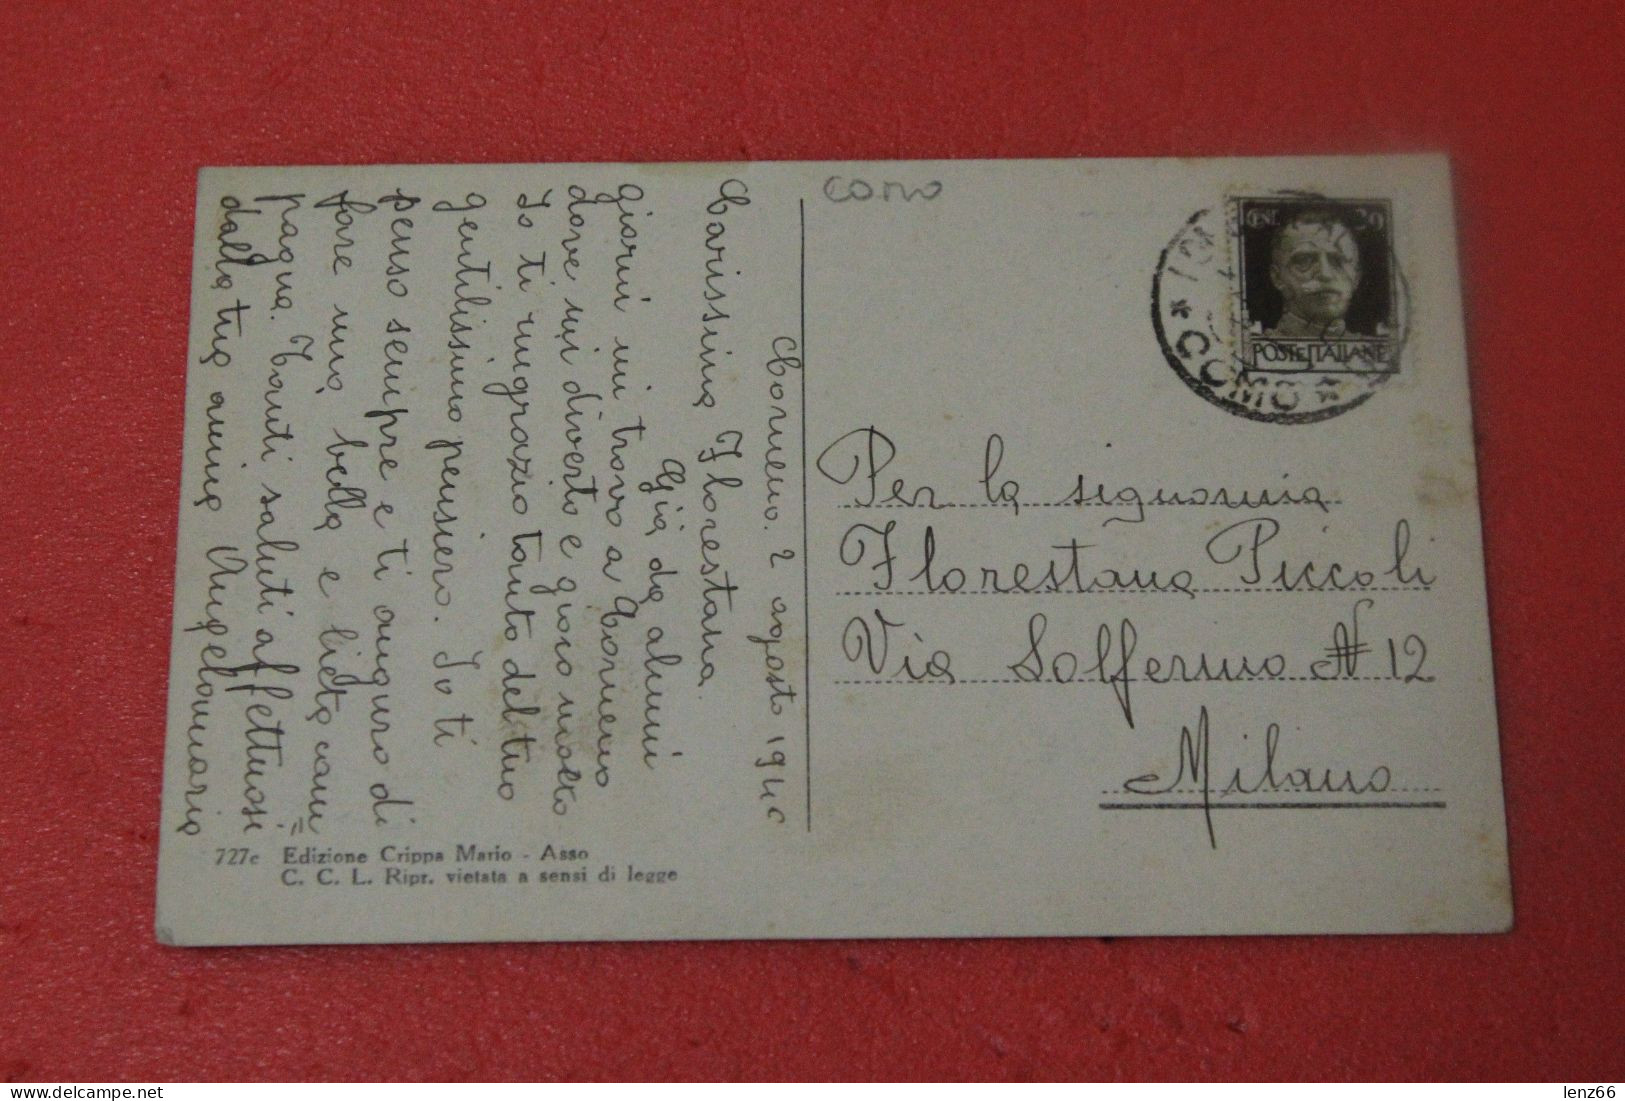 Corneno. 2 agosto 1940
Carissima Florestana.
Già da alcuni
giorni mi trovo a Corneno
dove mi diverto e gioco molto
Io ti ringrazio tanto del tuo
gentilissimo pensiero. Io ti
penso sempre e ti auguro di
fare una bella e lieta cam=
pagna. Tanti saluti affettuosi
dalla tua amica Angelamaria
727e Edizione Crippa Mario - Asso
C. C. L. Ripr. vietata a sensi di legge
como
CENT. 30
POSTE ITALIANE
* COMO *
Per la signorina
Florestana Piccoli
Via Solferino N 12
Milano
lenz66